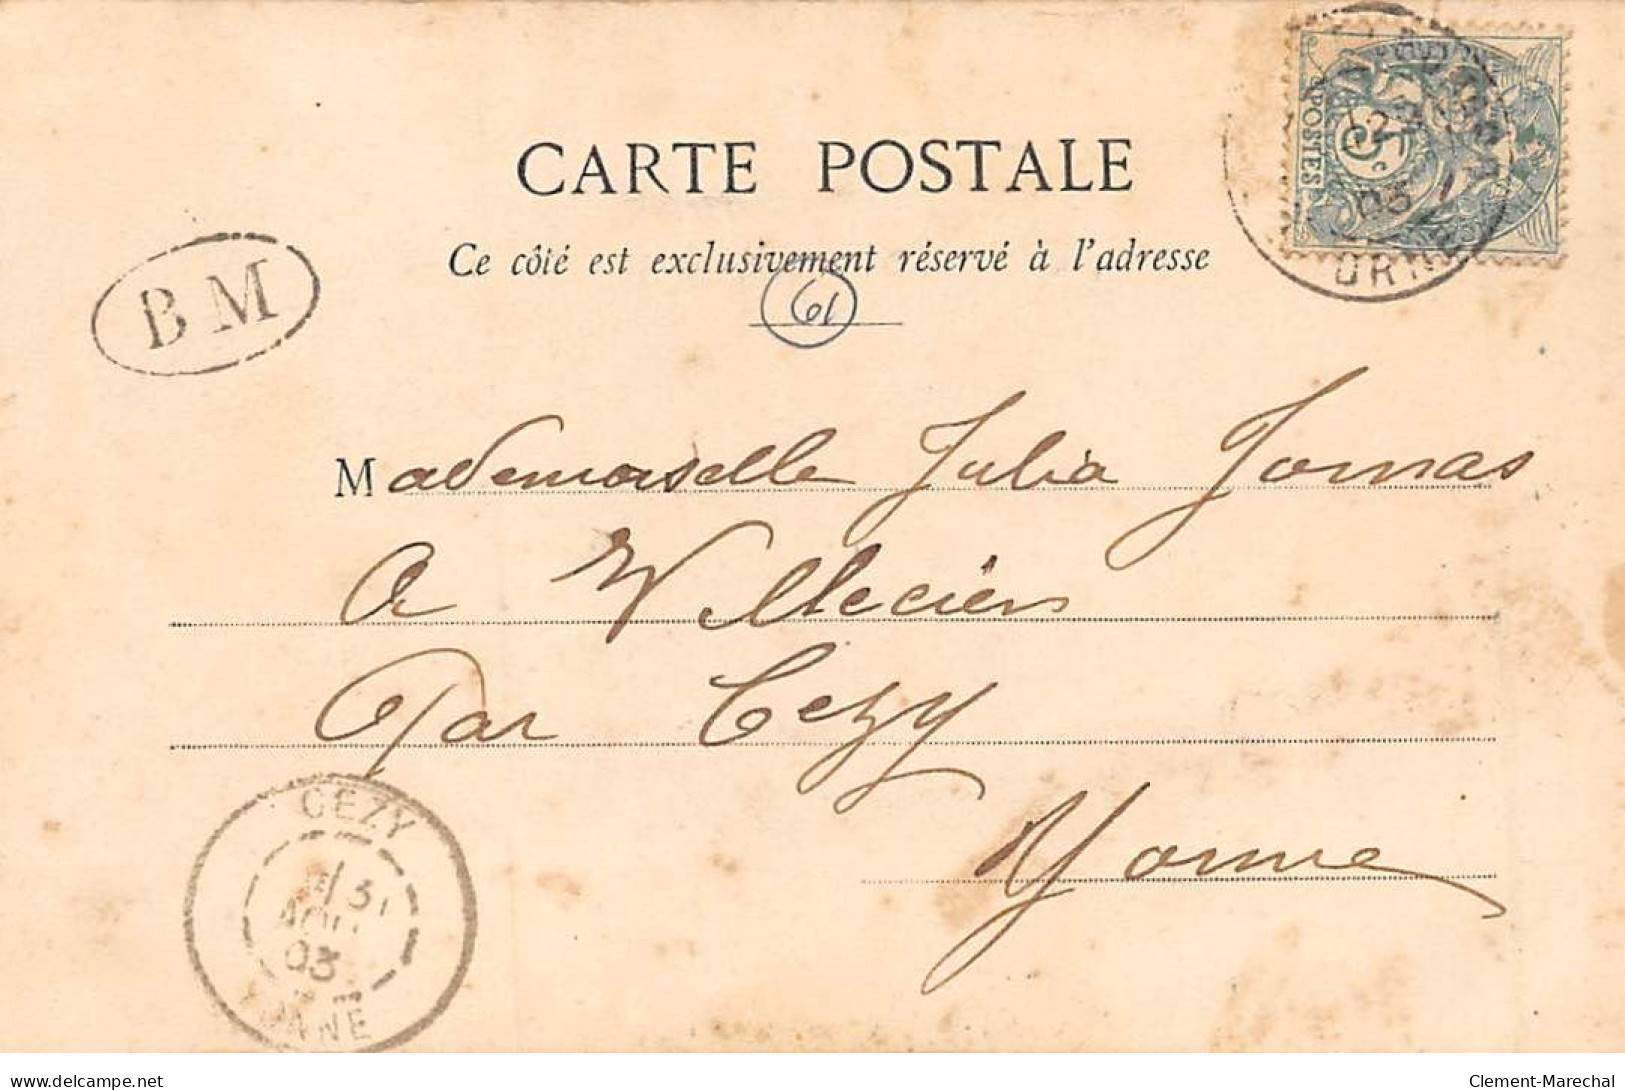 CARTE POSTALE
Ce côté est exclusivement réservé à l'adresse
61
B M
POSTES
5c
03
ORNE
Mademoiselle Julia Jornas
A Villeciens
Par Cezy
Yonne
CEZY
31
AOUT
03
YONNE
delcampe.net
Clement-Marechal